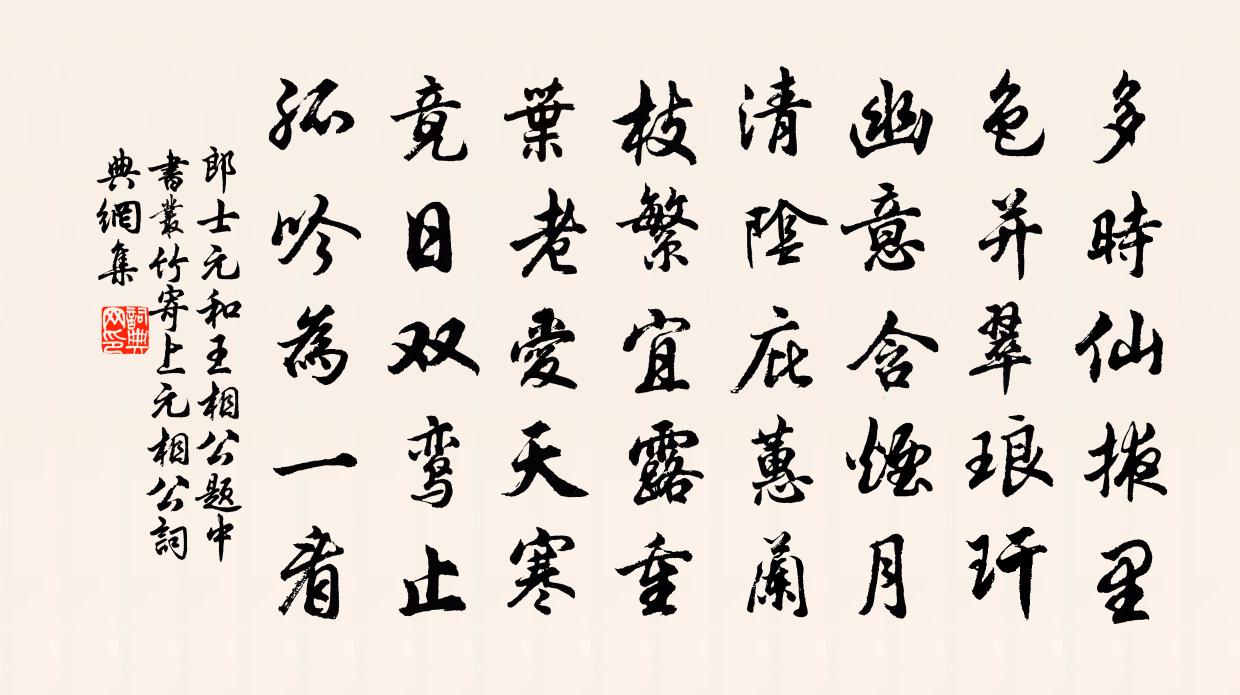 多時仙掖里
色并翠琅玕
幽意含煙月
清陰庇蕙蘭
枝繁宜露重
葉老愛天寒
竟日双鸾止
孤吟為一看
郎士元和王相公题中
書叢竹寄上元相公詞
典網集
詞典网印